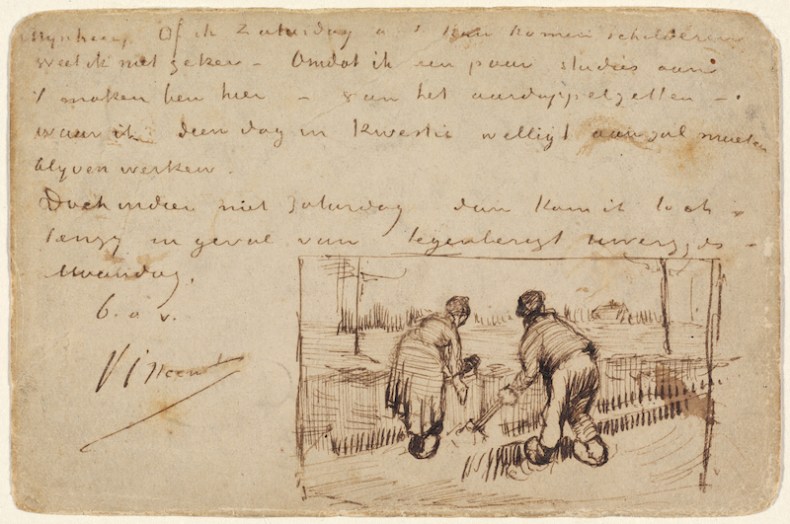 Mynheer, Of ik Zaturdag a s kan komen schilderen
weet ik niet zeker – Omdat ik een paar studies aan
't maken ben hier – van het aardappelzetten –
waar ik dien dag in kwestie welligt aan zal moeten
blyven werken.
Doch indien niet Zaturdag dan kom ik toch –
tenzy in geval van tegenberigt uwerzyds –
Maandag.
b. a v.
Vincent